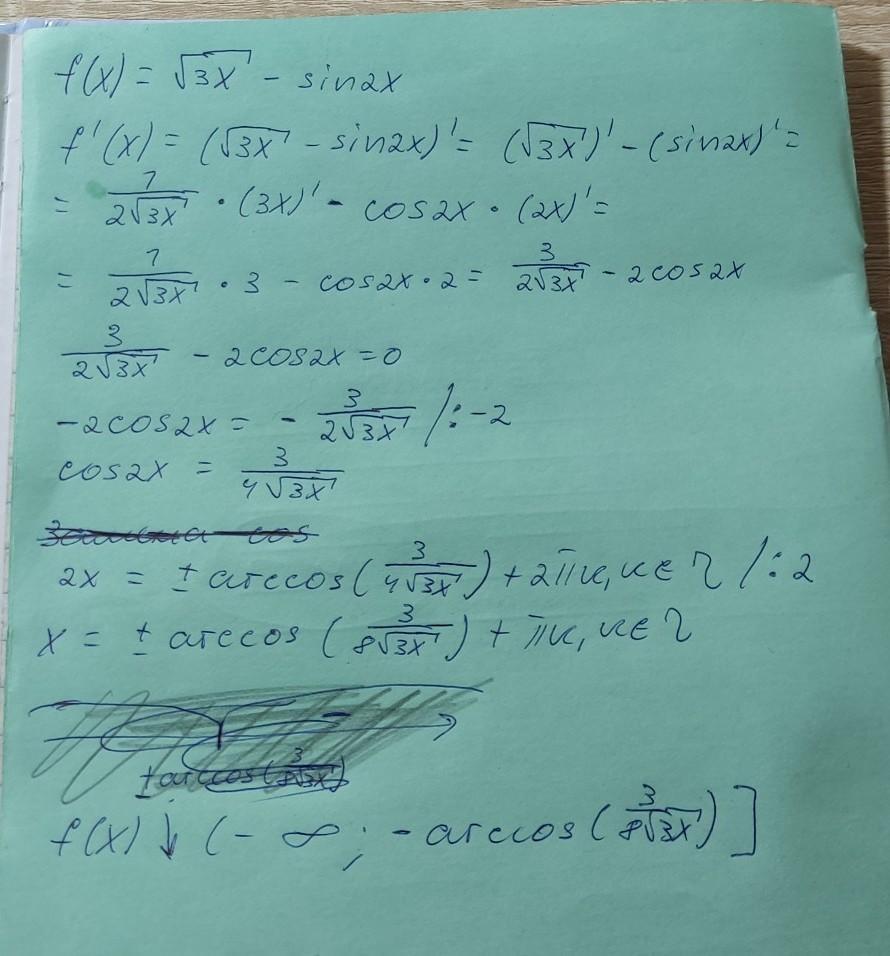 f(x) = √3x - sin2x
f'(x) = (√3x - sin2x)' = (√3x)' - (sin2x)' =
= 1/(2√3x) · (3x)' - cos2x · (2x)' =
= 1/(2√3x) · 3 - cos2x · 2 = 3/(2√3x) - 2cos2x
3/(2√3x) - 2cos2x = 0
-2cos2x = - 3/(2√3x) /: -2
cos2x = 3/(4√3x)
Замена cos
2x = ± arccos(3/(4√3x)) + 2πk, k ∈ Z /: 2
x = ± arccos(3/(8√3x)) + πk, k ∈ Z
± arccos(3/(8√3x))
f(x) ↓ (- ∞; - arccos(3/(8√3x))]